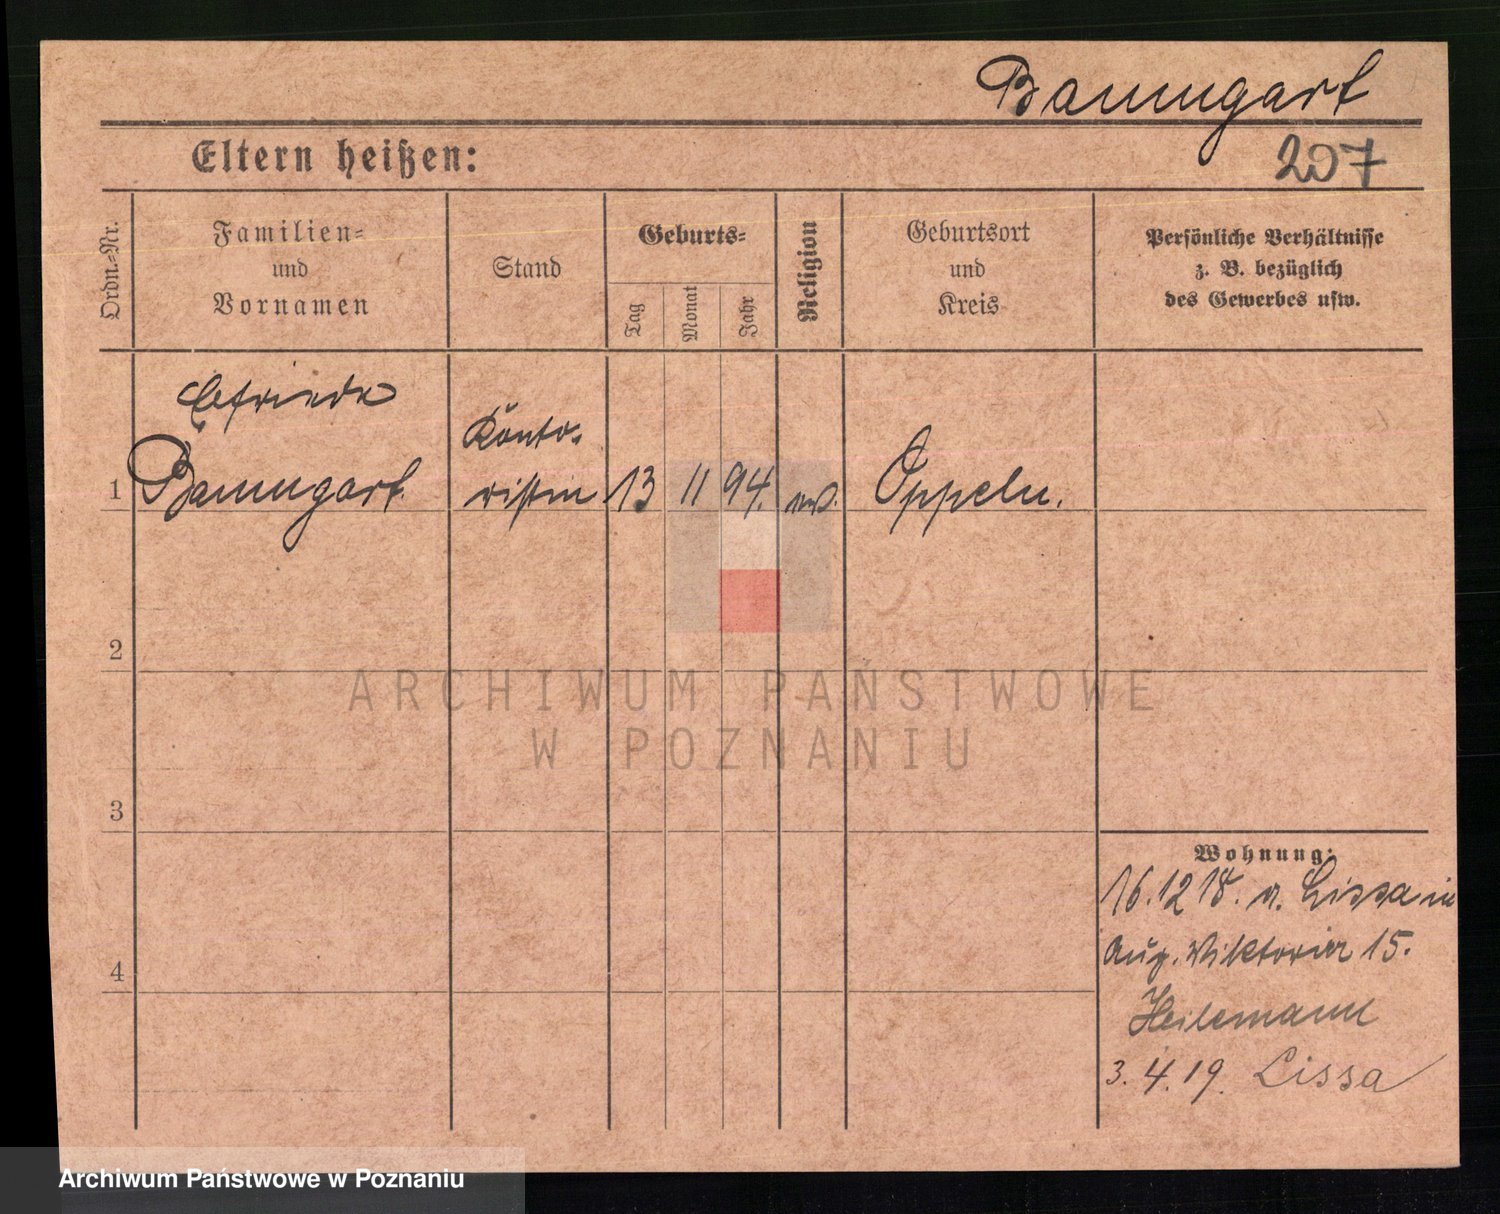 Baumgart
Eltern heißen:
207
Ordn.-Nr.
Familien-
und
Vornamen
Stand
Geburts-
Tag
Monat
Jahr
Religion
Geburtsort
und
Kreis
Persönliche Verhältnisse
z. B. bezüglich
des Gewerbes usw.
1
Elfriede
Baumgart.
Konto-
ristin
13
11
94.
Oppeln.
2
3
4
Wohnung:
16.12 18. v. Lissa in
Aug. Viktoriastr 15.
Heilemann
3.4.19. Lissa
ARCHIWUM PAŃSTWOWE
W POZNANIU
Archiwum Państwowe w Poznaniu